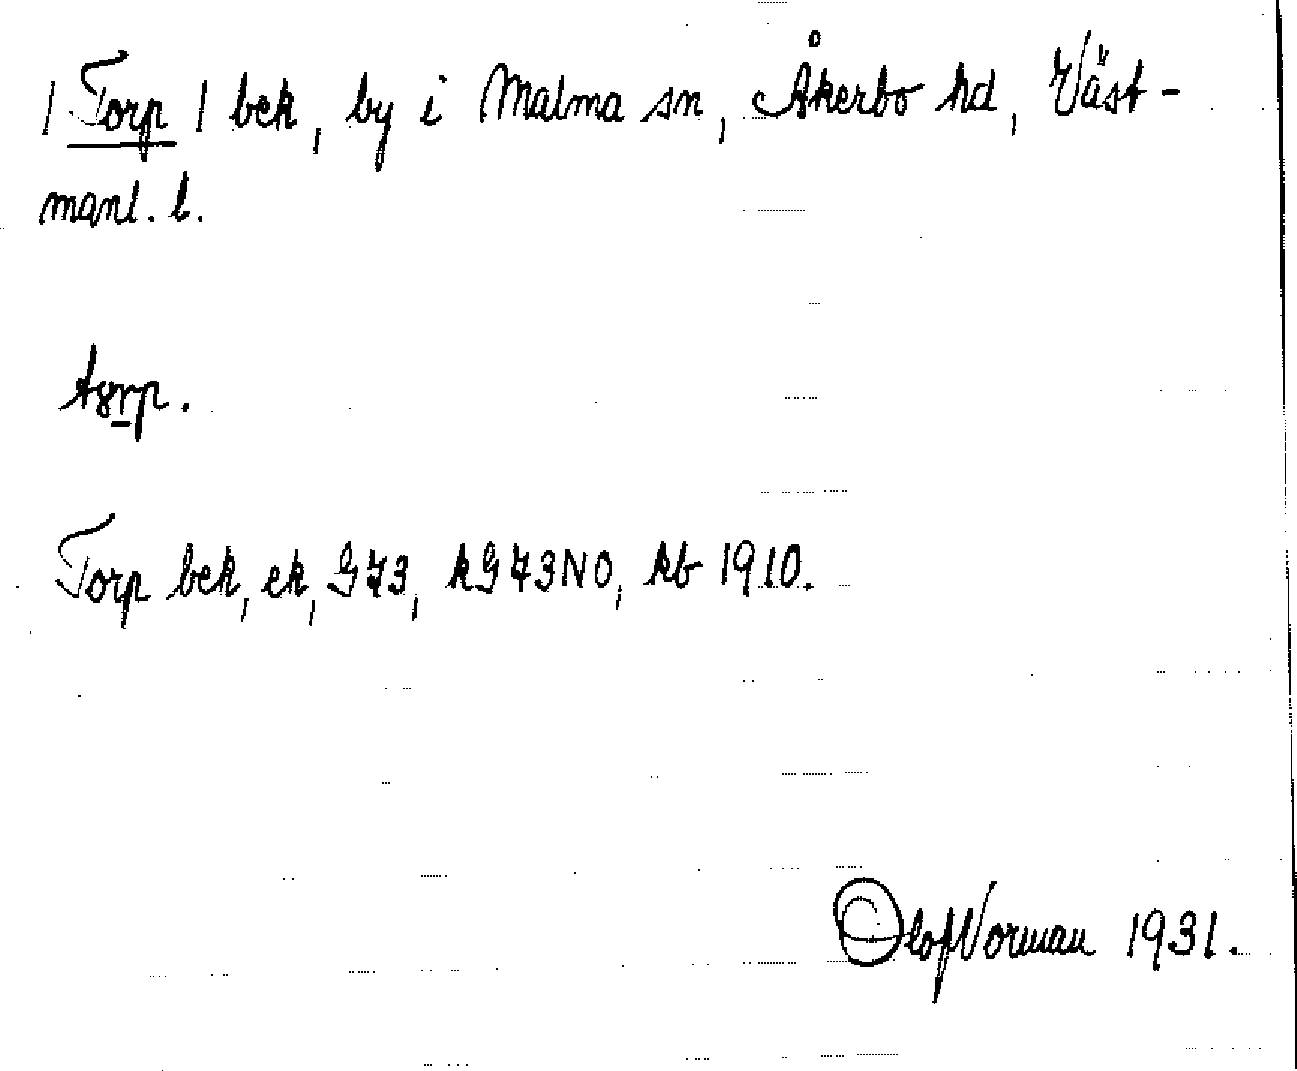 / Torp / bek, by i Malma sn, Åkerbo hd, Väst-
manl. l.
Torp bek, ek, G73, kG73NO, kb 1910.
Olof Norman 1931.